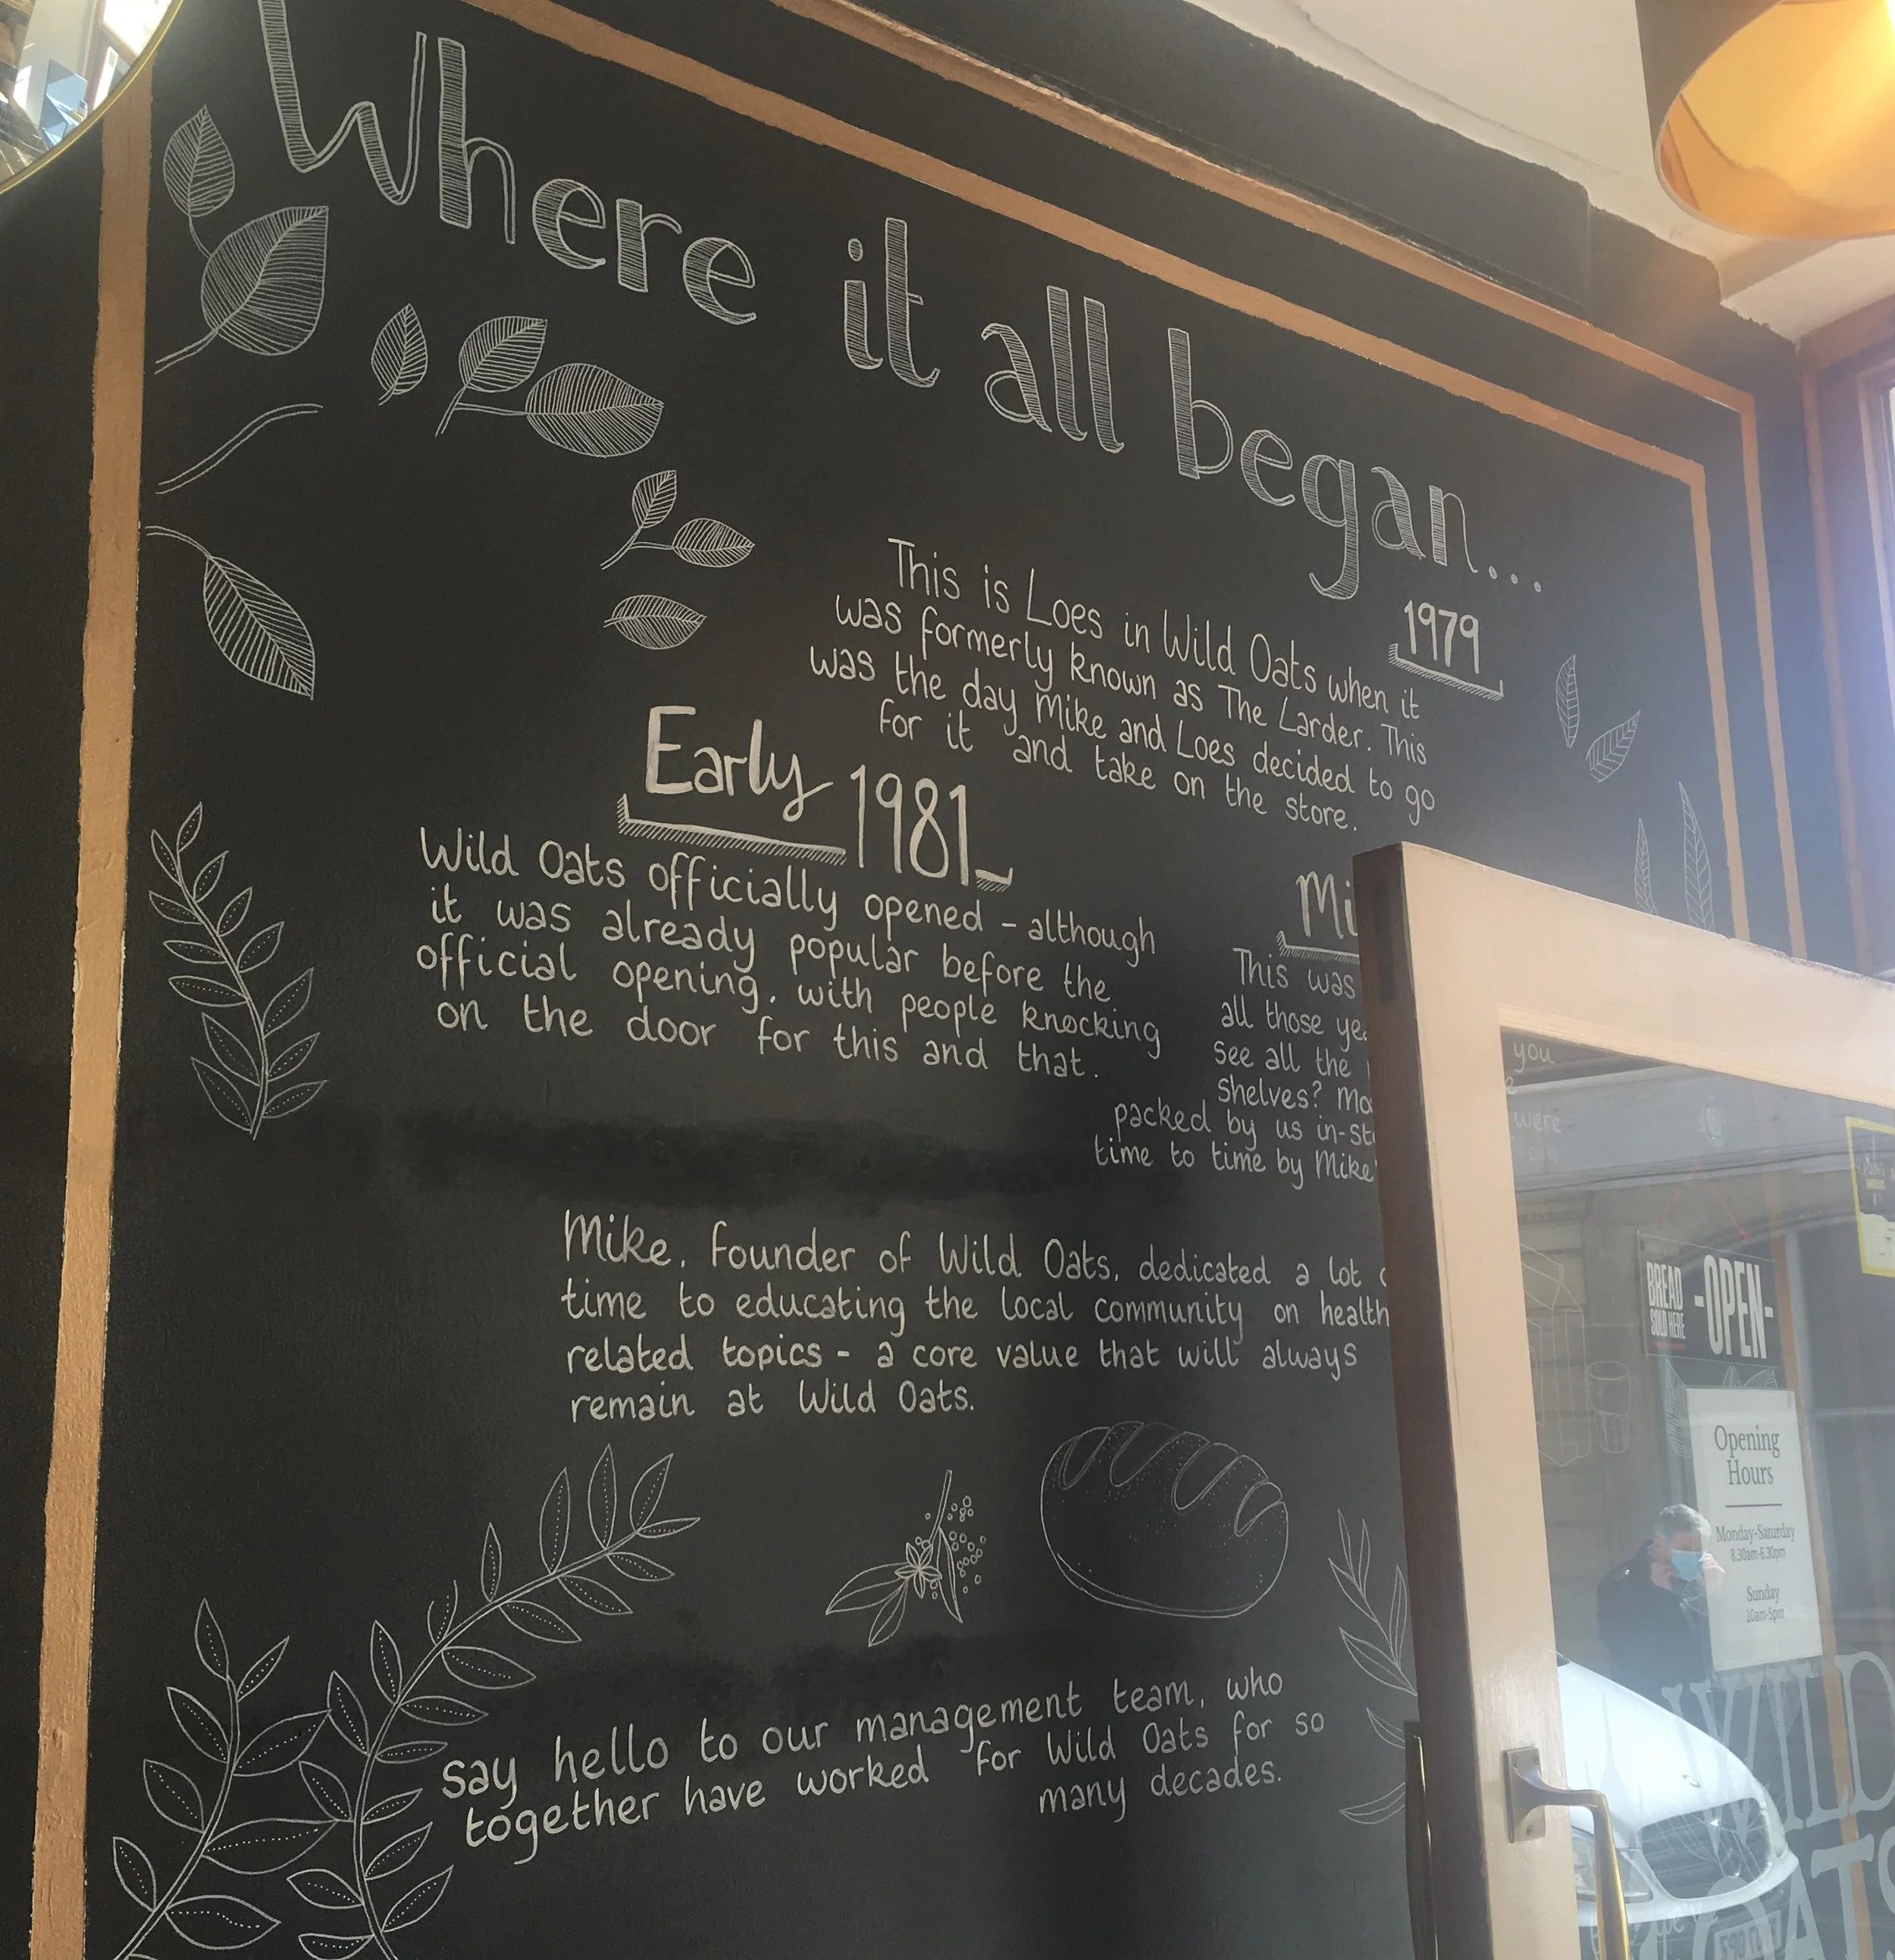 Where it all began...
1979
This is Loes in Wild Oats when it
was formerly known as The Larder. This
was the day Mike and Loes decided to go
for it and take on the store.
Early 1981
Wild Oats officially opened - although
it was already popular before the
official opening, with people knocking
on the door for this and that.
This was
all those
you
See all the
shelves?
packed by us
were
time to time by Mike
Mike, founder of Wild Oats, dedicated a lot
time to educating the local community on health
related topics - a core value that will always
remain at Wild Oats.
say hello to our management team, who
together have worked for Wild Oats for so
many decades.
BREAD
SOLD HERE
-OPEN-
Opening
Hours
Monday-Saturday
8.30am-6.30pm
Sunday
10am-5pm
WILD
OATS